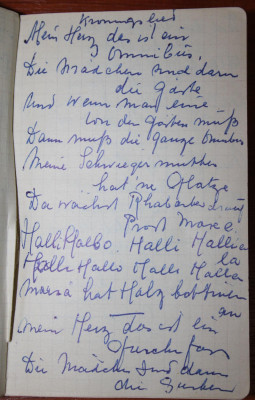 Mein Herz das ist ein
Omnibus,
Die Mädchen sind darin
die Gäste
Und wenn man eine
von den Gästen muß
Dann muß die ganze Omnibus
Meine Schwiegermutter
hat 'ne Glatze
Da wächst Rhabarber drauf
Prost Maxe
Halli Hallo Halli Hallo
la
Halli Hallo Halli Hallo
hat Holzpottinen
an
Mein Herz das ist ein
Gurkenfass
Die Mädchen sind darin
die Gurken